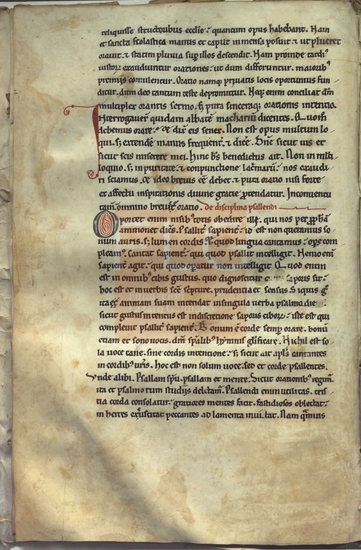 reliquisse structoribus ecclie quantum opus habebant. Nam
et sancta scolastica manus et caput in mensa posuit ut plueret
orauit. et statim pluuia sup illos descendit. Nam proinde tardi
iustorum exaudiuntur orationes. ut dum differuntur. maioribus
premiis cumulentur. Oratio namq; priuatis locis oportunius fun
ditur. dum deo tantum teste depromitur. Neq; enim conciliat dm
multiplex orantis sermo. sz pura sinceraq; orationis intentio.
Interrogauer quidam abbate macharium dicentes. Quom
debemus orare. et dix eis senex. Non est opus multum lo
qui. sz extende manus frequent. et dice. Dne sicut uis et
sicut scis miserere mei. Hinc bs benedictus ait. Non in multi
loquio. sz in puritate et conpunctione lacrimarum. nos exaudi
ri sciamus. et ideo breuis et debet et pura oratio nisi forte
ex affectu inspirationis diuine gracie protendatur. In conuentu
tam omnino breuiet oratio. De disciplina psallendi.
Oportet enim in his totis obedire illi. qui nos per pphm
ammonet dicens. Psallite sapienter. id est non queramus so
num auris. sz lumen cordis. et quod lingua cantamus. opere com
pleamus. Cantat sapienter qui quod psallit intelligit. Nemo enim
sapienter agit. qui quod operatur non intelligit. Quod enim
est in omnibus cibis gustus. quo dignoscitur sapis sit.
hoc est in uerbis sce scripture. prudentia et sensus. Si quis ergo
ita animam suam intendat in singula uerba psalmo die
sicut gustus intentus est in discretione saporis ciborum. iste est qui
complet psallite sapienter. Bonum est corde semp orare. bonum
etiam et sono uocis. dm spalibz hymnis glificare. Nichil est so
la uoce canere. sine cordis intentione. sz sicut ait apls cantantes
in cordibz uris. hoc est non solum uoce. sed et corde psallentes.
Unde alibi. Psallam spu. psallam et mente. Sicut orationibz regim
ita et psalmorum studiis delectamur. Psallendi enim utilitas. tris
tia corda consolatur. gratiores mentes facit. fastidiosos oblectat.
inertes exsuscitat peccantes ad lamenta inuitat. Nam quamuis